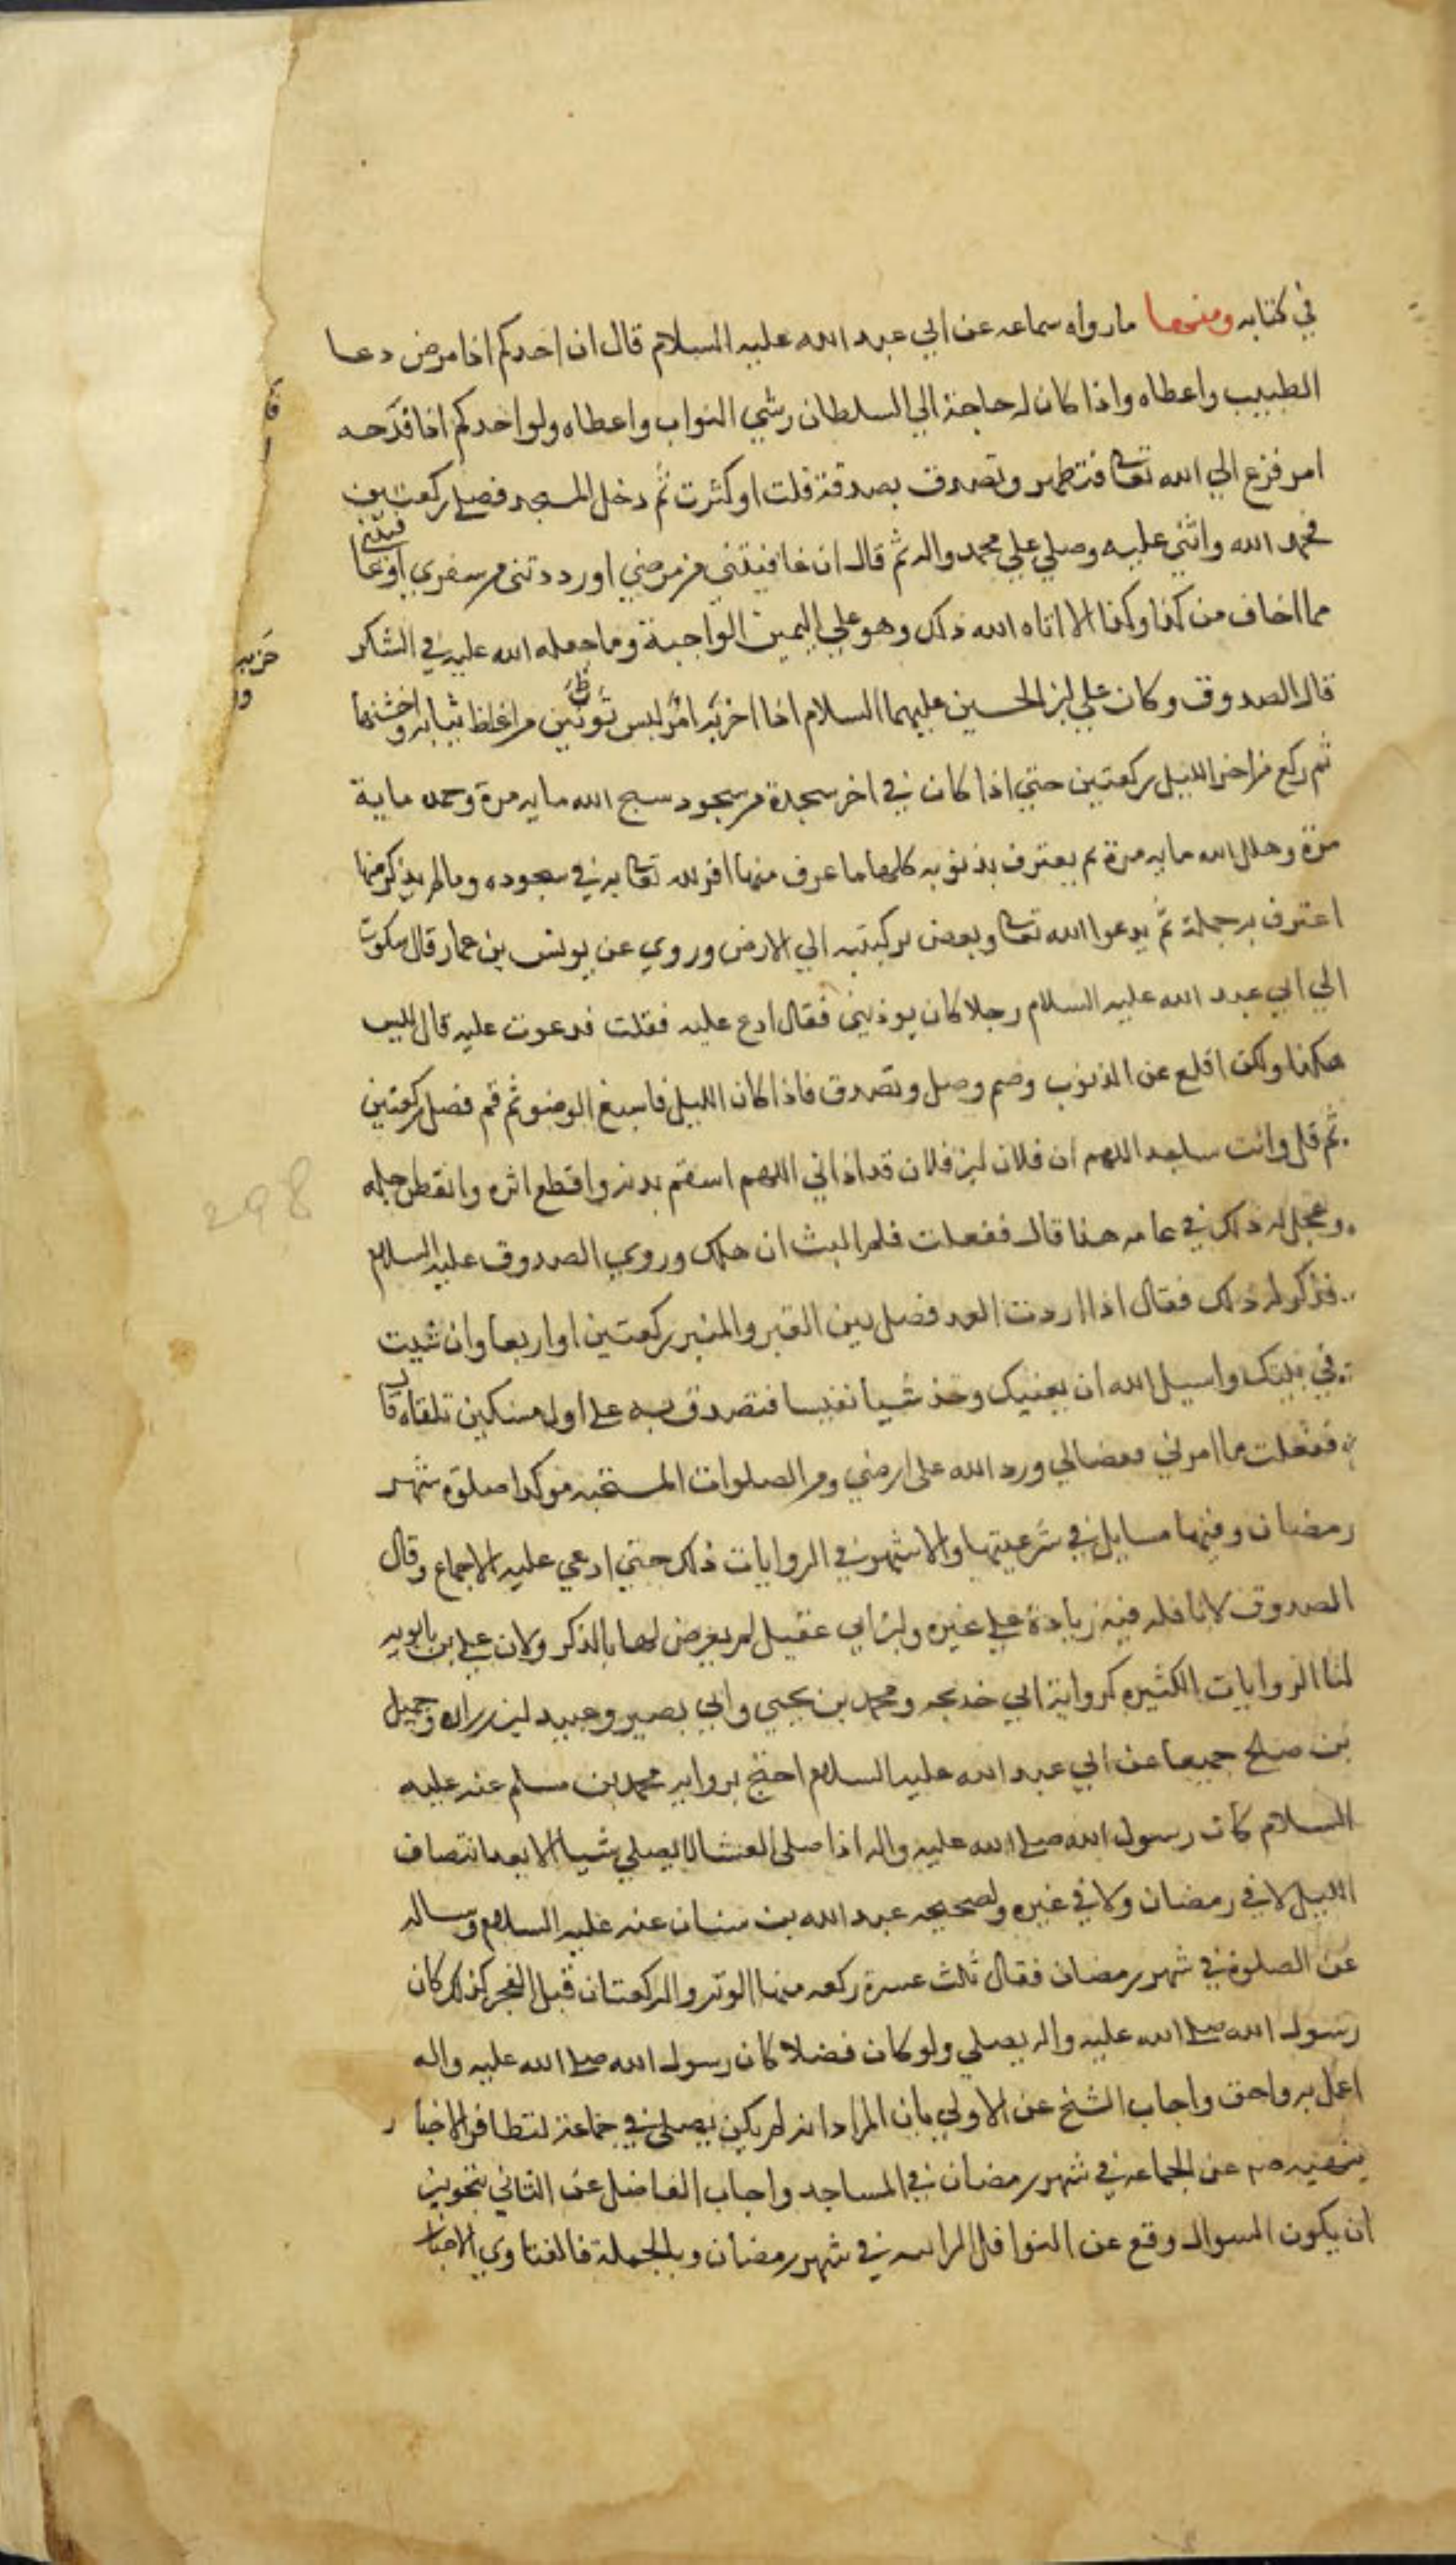 في كتابه ومنها ما رواه سماعه عن ابي عبد الله عليه السلام قال ان احدكم اذا مرض دعا
الطبيب واعطاه واذا كان له حاجة الي السلطان رشي البواب واعطاه ولو احدكم اذا فدحه
امر فزع الي الله تعالى فتطهر وتصدق بصدقة قلت او كثرت ثم دخل المسجد فصلى ركعتين
فحمد الله واثني عليه وصلي علي محمد واله ثم قال ان عافيتني من مرضي او رددتني من سفري او عا
فيتني
مما اخاف من كذا وكذا الا اتاه الله ذلك وهو علي اليمين الواجبة وما جعله الله عليه في الشكر
قال الصدوق وكان علي ابن الحسين عليهما السلام اذا احزنه امر لبس ثوبين من اغلظ ثيابه واخشنها
ثم ركع من اخر الليل ركعتين حتي اذا كان في اخر سجدة من سجود سبح الله مايه مرة وحمد ماية
مرة وهلل الله مايه مرة ثم يعترف بذنوبه كلها ما عرف منها اقر لله تعالى به في سجوده وما لم يذكر منها
اعترف به جملة ثم يدعوا الله تعالى وبعض بركبتيه الي الارض وروي عن يونس بن عمار قال شكوت
الي ابي عبد الله عليه السلام رجلا كان يوذيني فقال ادع عليه فقلت قد دعوت عليه قال ليس
هكذا ولكن اقلع عن الذنوب وصم وصل وتصدق فاذا كان الليل فاسبغ الوضو ثم قم فصل ركعتين
ثم قل وانت ساجد اللهم ان فلان ابن فلان قد اذاني اللهم اسقم بدنه واقطع اثره وانقص اجله
وعجل له ذلك في عامه هذا قال ففعلت فلم البث ان هلك وروي الصدوق عليه السلام
فذكر له ذلك فقال اذا اردت العود فصل بين القبر والمنبر ركعتين او اربعا وان شيت
في بيتك واسيل الله ان يعينك وخذ شيا نفيسا فتصدق به على اول مسكين تلقاه قال
ففعلت ما امرني فقضا لي ورد الله على ارضي ومن الصلوات المستحبه موكدا صلوة شهر
رمضان وفيها مسايل في شرعيتها والاشهر في الروايات ذلك حتي ادعي عليه الاجماع وقال
الصدوق لا نافله فيه زيادة علي غيره وابن ابي عقيل لم يعرض لها بالذكر ولان علي بن بابويه
لنا الروايات الكثيره كرواية ابي خديجه ومحمد بن يحيي وابي بصير وعبيد ابن زراره وجميل
بن صلح جميعا عن ابي عبد الله عليه السلام احتج بروايه محمد بن مسلم عنه عليه
السلام كان رسول الله صلى الله عليه واله اذا صلى العشا لا يصلي شيا الا بعد انتصاف
الليل لا في رمضان ولا في غيره ولصحيحه عبد الله بن سنان عنه عليه السلام وساله
عن الصلوة في شهر رمضان فقال ثلث عسرة ركعه منها الوتر والركعتان قبل الفجر كذلك كان
رسول الله صلى الله عليه واله يصلي ولو كان فضلا كان رسول الله صلى الله عليه واله
اعمل به واحق واجاب الشيخ عن الاولي بان المراد انه لم يكن يصلي في جماعة لتظافر الاخبار
بنهيه عن الجماعه في شهر رمضان في المساجد واجاب الفاضل عن الثاني بتجويز
ان يكون السوال وقع عن النوافل الراتبه في شهر رمضان وبالجملة فالفتاوي الاخبار
298